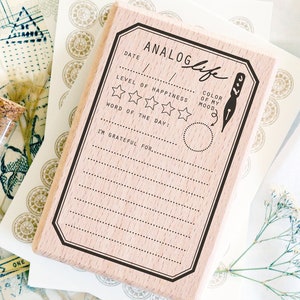 ANALOG life
DATE / /
LEVEL OF HAPPINESS
COLOR
OF MY
MOOD
WORD OF THE DAY:
I'M GRATEFUL FOR